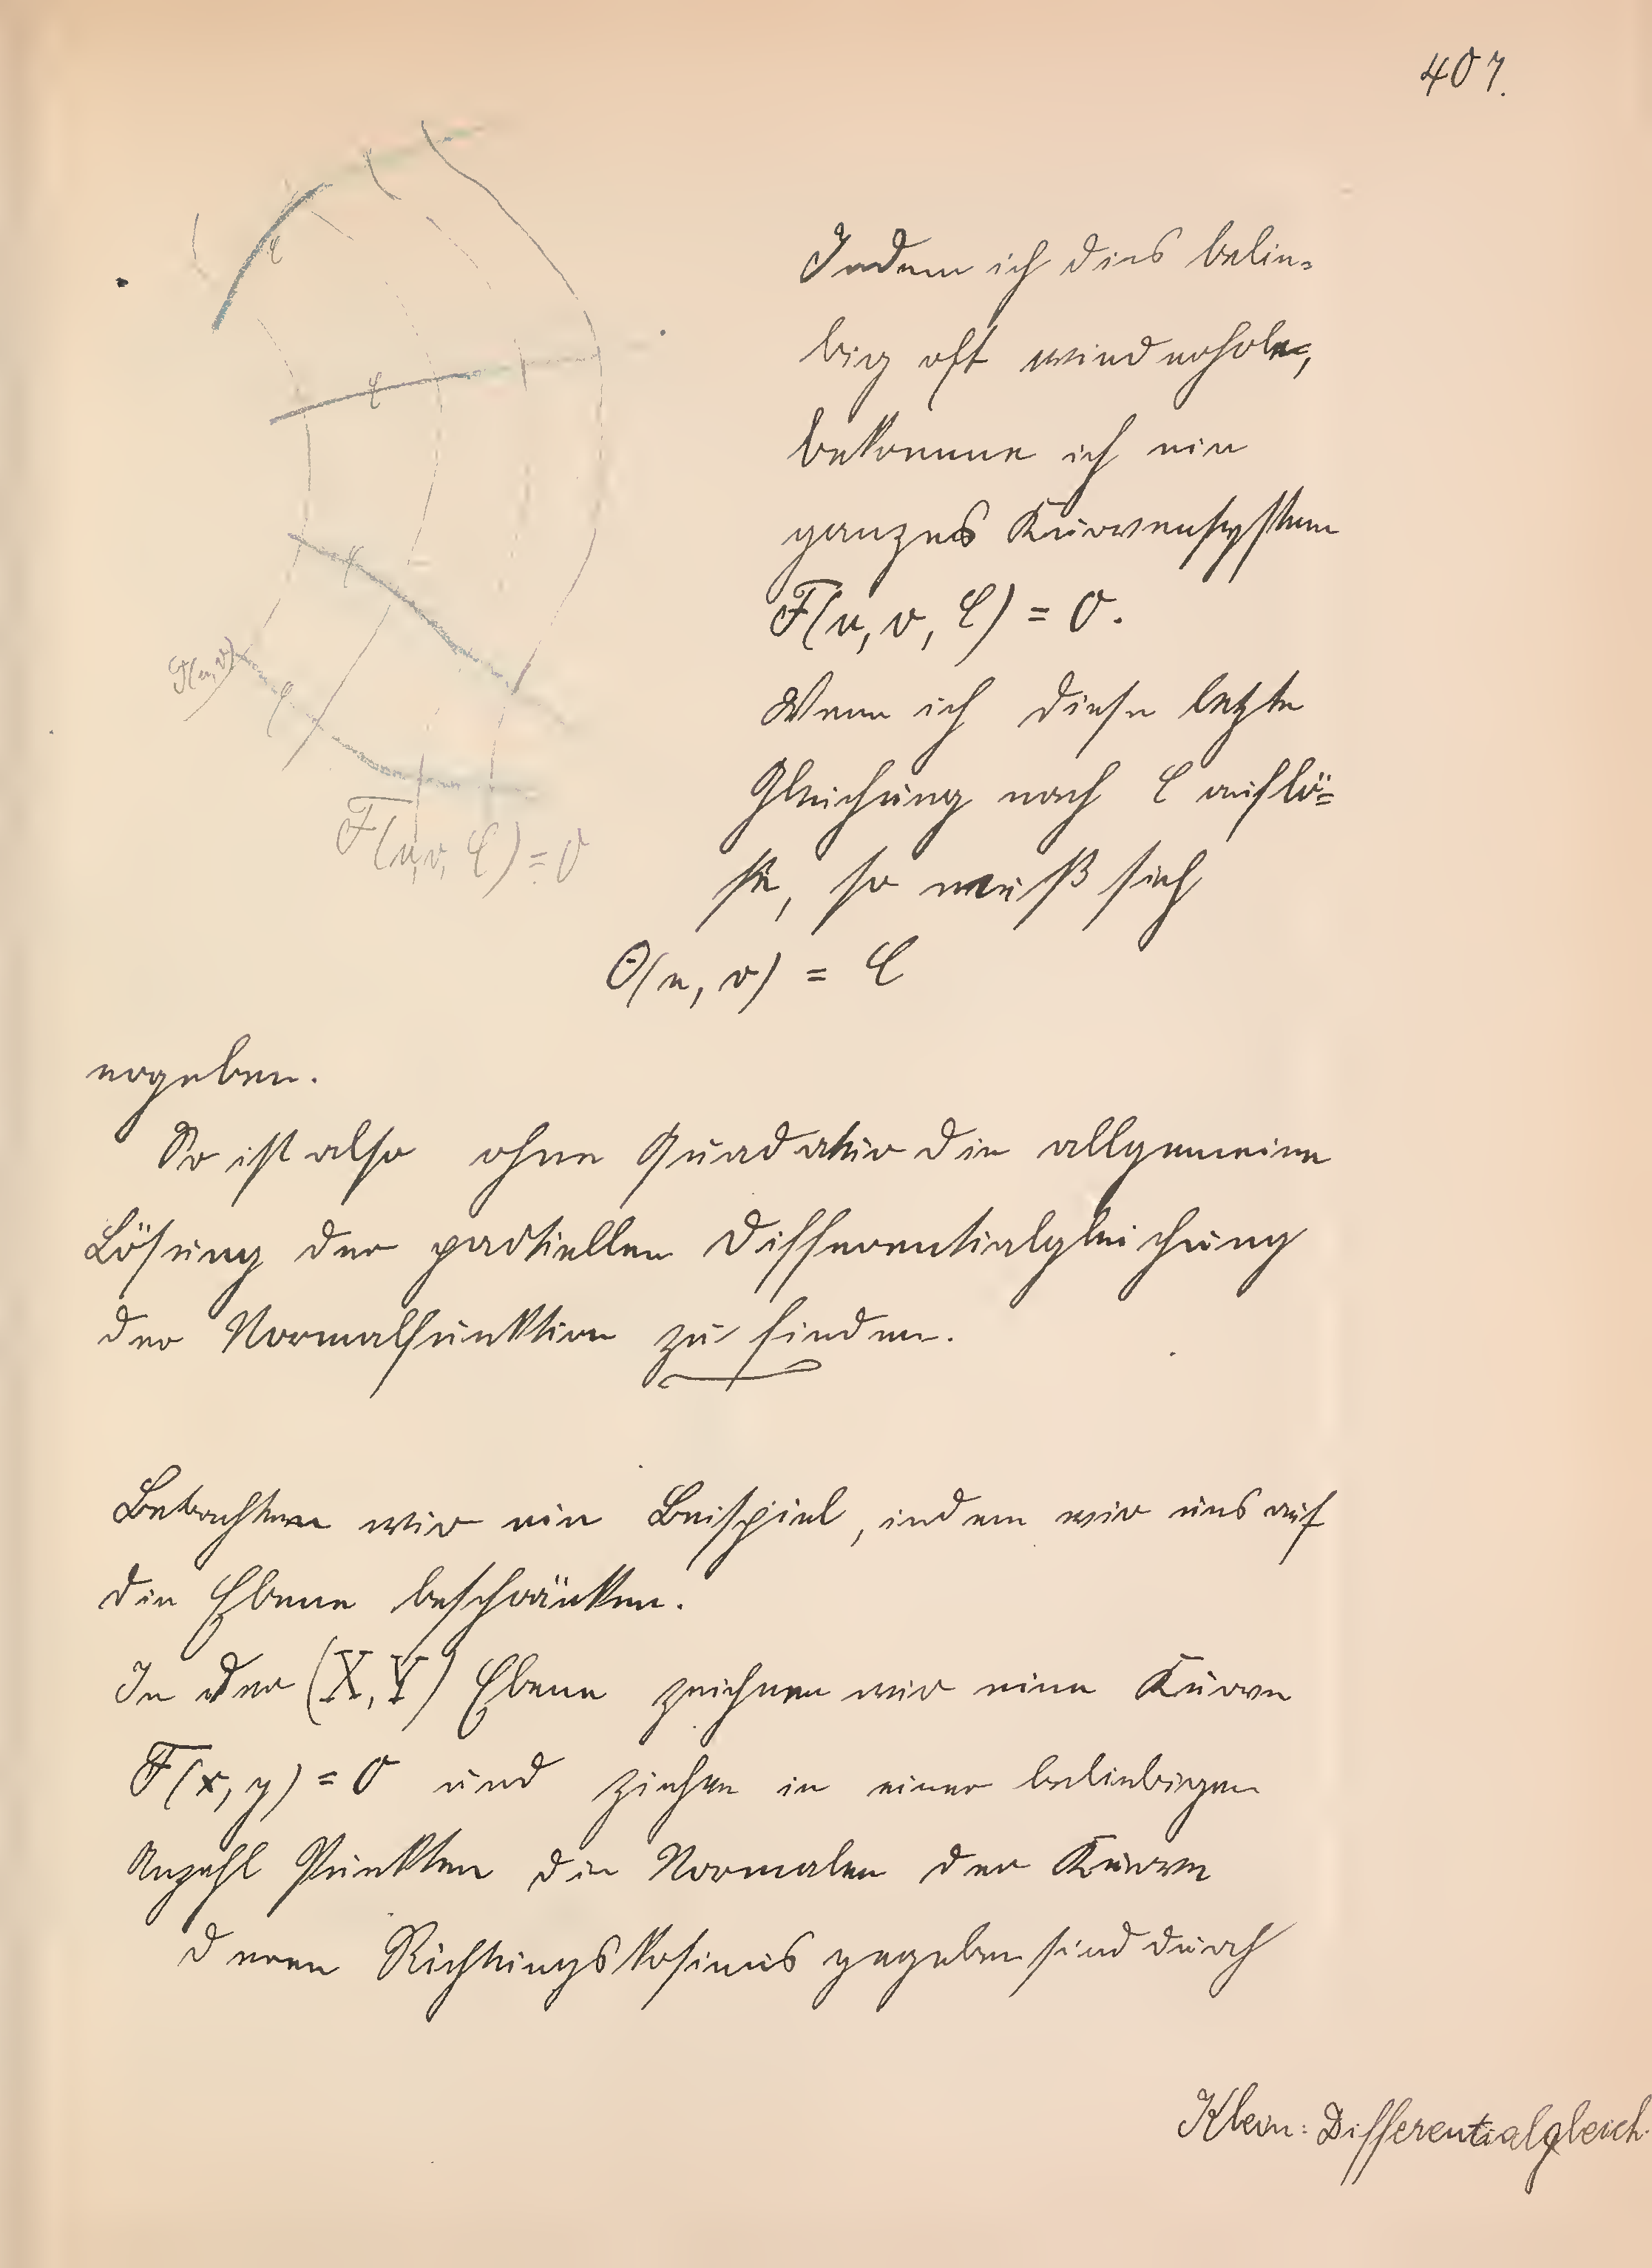 407.
Indem ich dies belie-
big oft wiederhole,
bekomme ich ein
ganzes Kurvensystem
F(u, v, C) = 0.
Wenn ich diese letzte
Gleichung nach C auflö=
se, so muß sich
F(u,v, C) = 0
Θ(u, v) = C
ergeben.
So ist also ohne Quadratur die allgemeine
Lösung der partiellen Differentialgleichung
der Normalfunktion zu finden.
Betrachten wir ein Beispiel, indem wir uns auf
die Ebene beschränken.
In der (X, Y) Ebene zeichnen wir eine Kurve
F(x, y) = 0 und ziehen in einer beliebigen
Anzahl Punkten die Normalen der Kurve
deren Richtungskosinus gegeben sind durch
Klein: Differentialgleich.